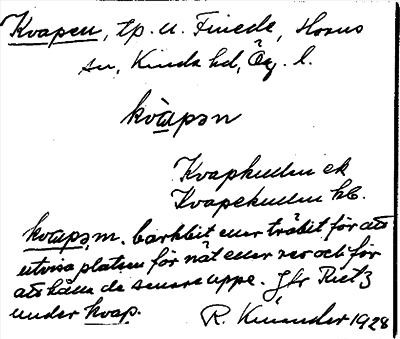 Kvapen, tp. u. Finede, Horns
sn, Kinda hd, Ög. l.
kvapən
Kvapkullen ek
Kvapekullen hb.
kvapə, m. barkbit eller träbit för att
utvisa platsen för nät eller rev och för
att hålla de senare uppe. Jfr Rietz
under kvap.
R. Kinander 1928